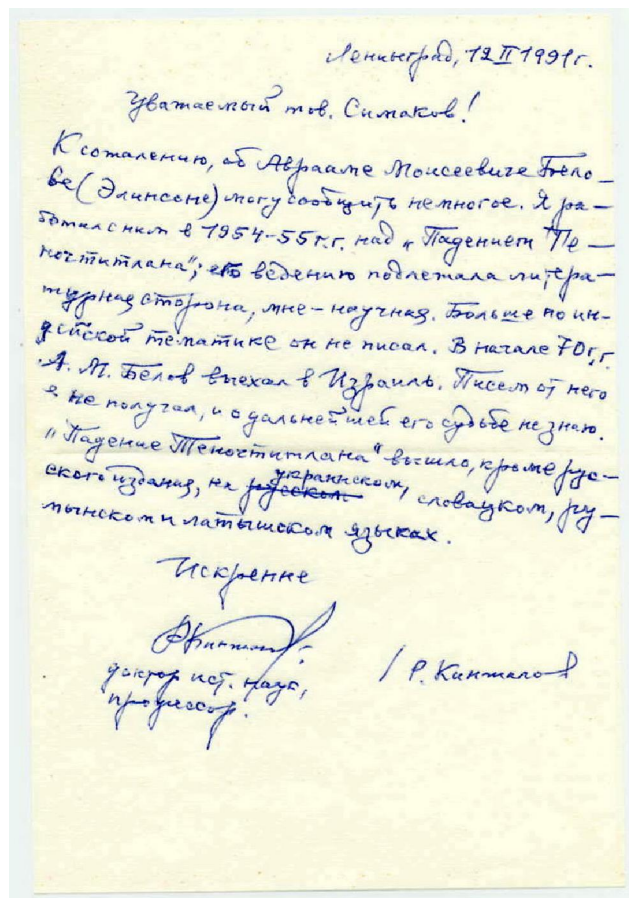 Ленинград, 12 II 1991 г.
Уважаемый тов. Симаков!
К сожалению, об Аврааме Моисеевиче Бело-
ве (Элинсоне) могу сообщить немногое. Я ра-
ботал с ним в 1954-55 г.г. над „Падением Те-
ночтитлана"; его ведению подлежала литера-
турная сторона, мне – научная. Больше по ин-
дейской тематике он не писал. В начале 70 г.г.
А. М. Белов выехал в Израиль. Писем от него
я не получал, и о дальнейшей его судьбе не знаю.
„Падение Теночтитлана" вышло, кроме рус-
ского издания, на русском украинском, словацком, ру-
мынском и латышском языках.
Искренне
Р Кинжалов
доктор ист. наук,
профессор.
/ Р. Кинжалов